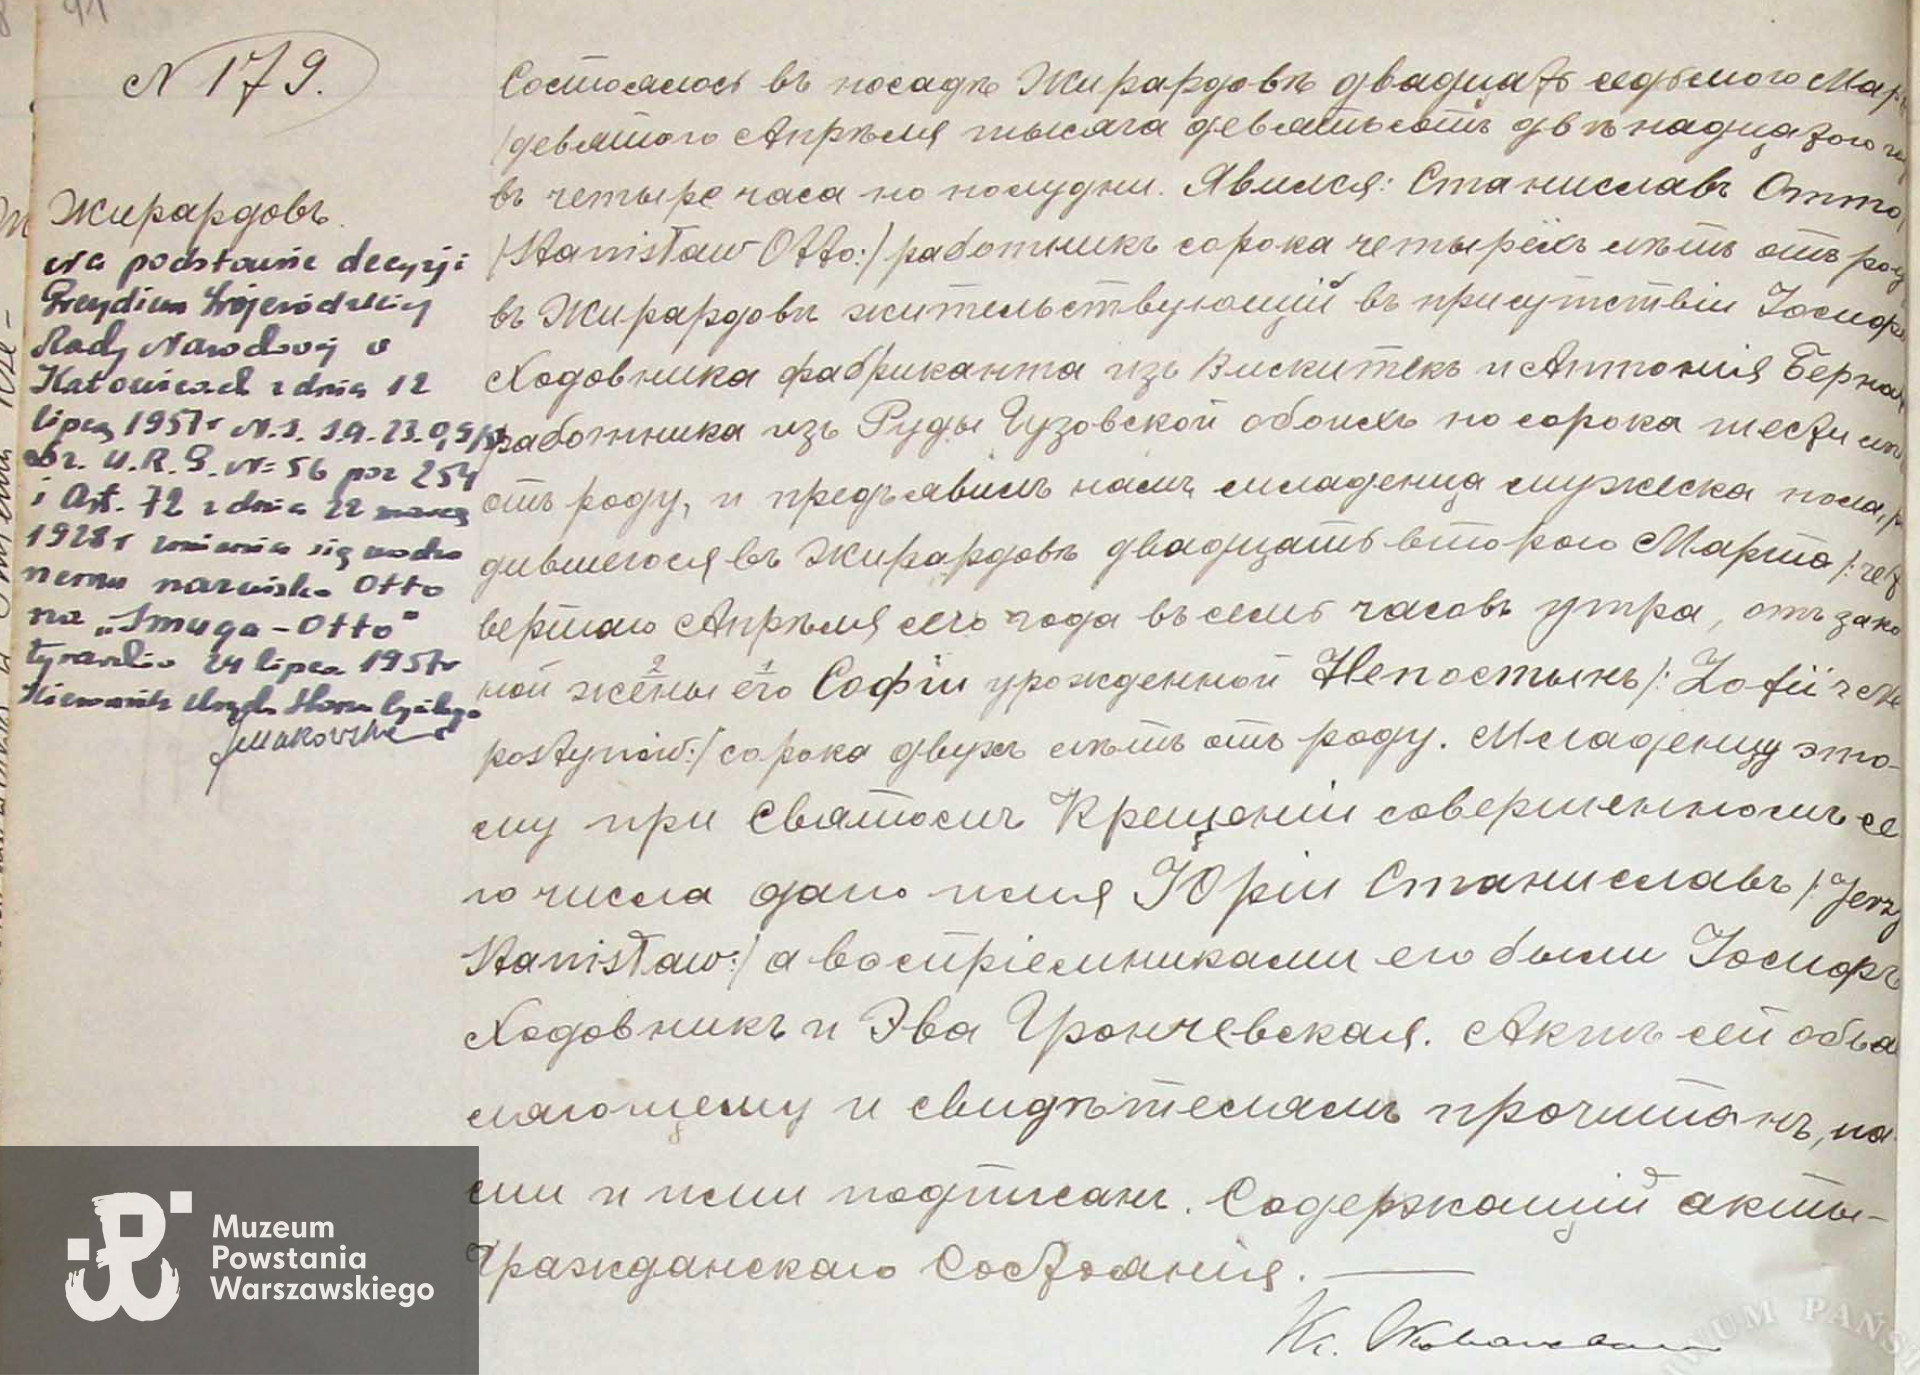 91
N 179.
Жирардовъ.
Na podstawie decyzji
Prezydium Wojewódzkiej
Rady Narodowej w
Katowicach z dnia 12
lipca 1957r N.
Dz. U. R. P. N= 56 poz 254
i Art. 72 z dnia 22 marca
1928r zmienia się
nemu nazwisko Otto
na „Smuga-Otto"
Żyrardów 24 lipca 1957r
Kierownik Urzędu Stanu Cywilnego
Состоялось въ посадѣ Жирардовѣ двадцать седьмого Мар
/девятого Апрѣля тысяча девятьсотъ двѣнадцатого
въ четыре часа по полудни. Явился: Станиславъ Отто
/Stanisław Otto:/ работникъ сорока четырёхъ лѣтъ отъ роду
въ Жирардовѣ жительствующій въ присутствіи Іосифа
Ходовника фабриканта изъ Вискитекъ и Антонія Берна
работника изъ Руды Гузовской обоихъ по сорока шести лѣ
отъ роду, и предъявилъ намъ младенца мужеска пола, р
дившегося въ Жирардовѣ двадцать второго Марта /: чет
вертаго Апрѣля сего года въ семь часовъ утра, отъ зако
ной жены его Софіи урожденной Непостынъ /: Zofii z Nie
postynów:/ сорока двухъ лѣтъ отъ роду. Младенцу это-
му при Святомъ Крещеніи совершенномъ се
го числа дано имя Юрій Станиславъ /: Jerzy
Stanisław:/ а воспріемниками его были Іосифъ
Ходовникъ и Эва Грончевская. Актъ сей объя
вляющему и свидѣтелямъ прочитанъ, на
ми и ими подписанъ. Содержащій акты
Гражданскаго Состоянія.
Muzeum
Powstania
Warszawskiego